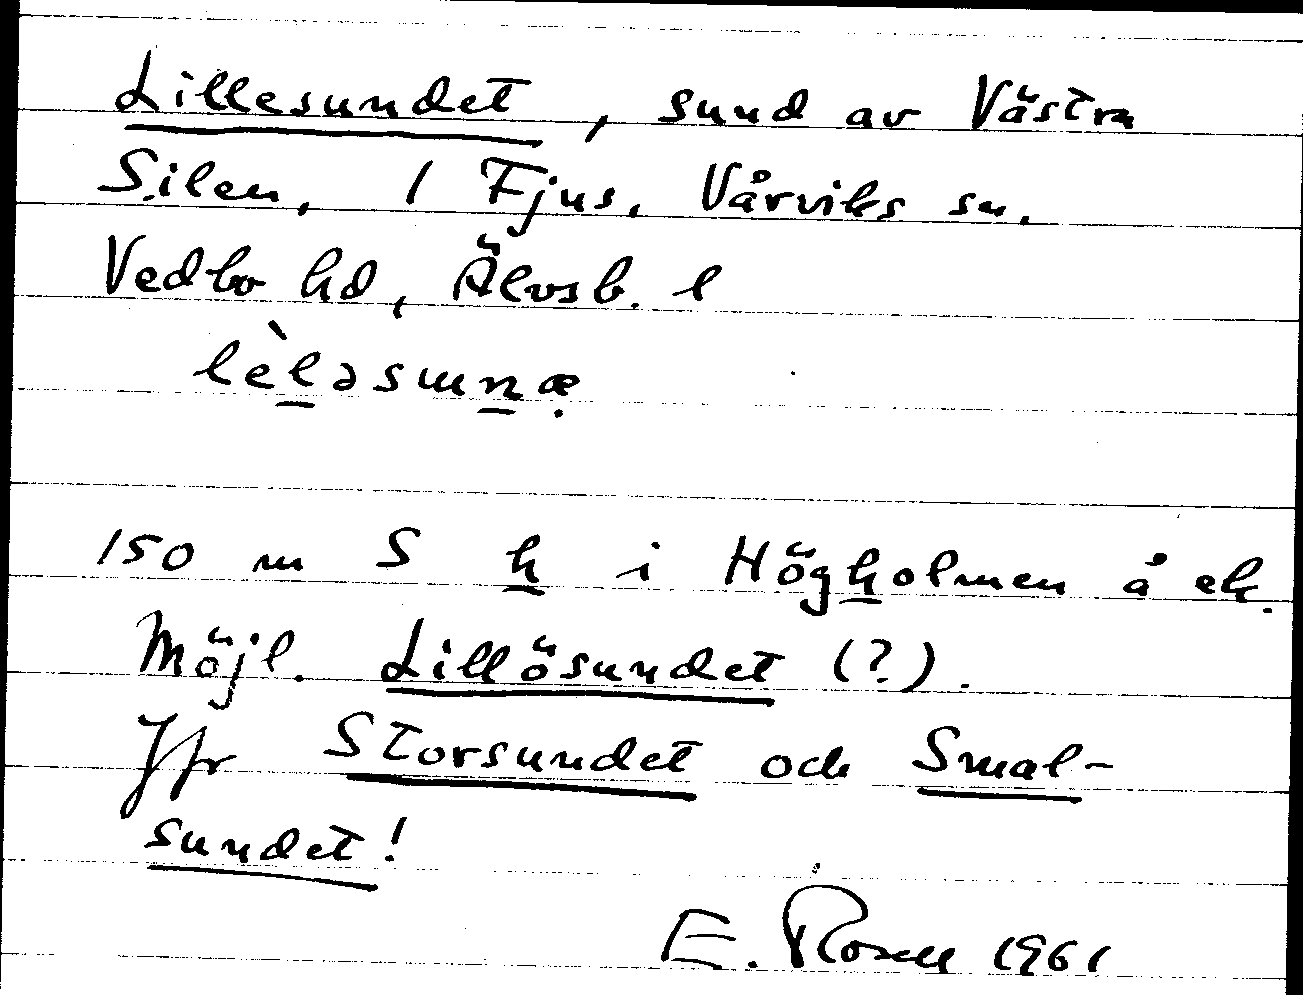 Lillesundet, sund av Västra
Silen, 1 Fjus, Vårviks sn.
Vedbo hd, Älvsb. l
lèləsunnæ
150 m S h i Högholmen å ek.
Möjl. Lillösundet (?).
Jfr Storsundet och Smal-
sundet!
E. Rosell 1961